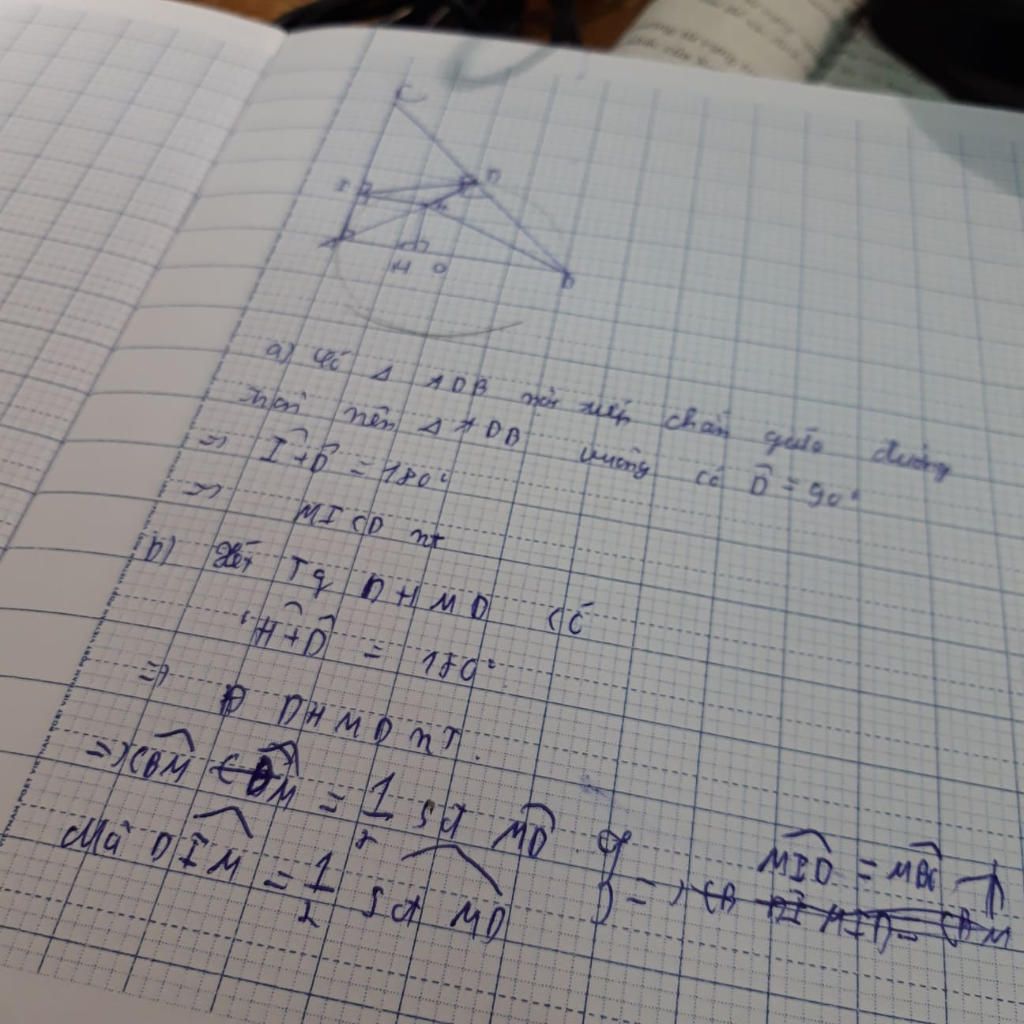 C
I D
M
A
H O B
a) Xét Δ ADB nội tiếp chắn giữa đường
tròn nên Δ ADB vuông có D̂ = 90°
=> Î + D̂ = 180°
=> MICD nt
b) Xét Tg BHMD có
Ĥ + D̂ = 180°
=> BHMD nT
=> CBM = 1/2 Sđ MD
Mà DIM = 1/2 Sđ MD
=> MID = MBC